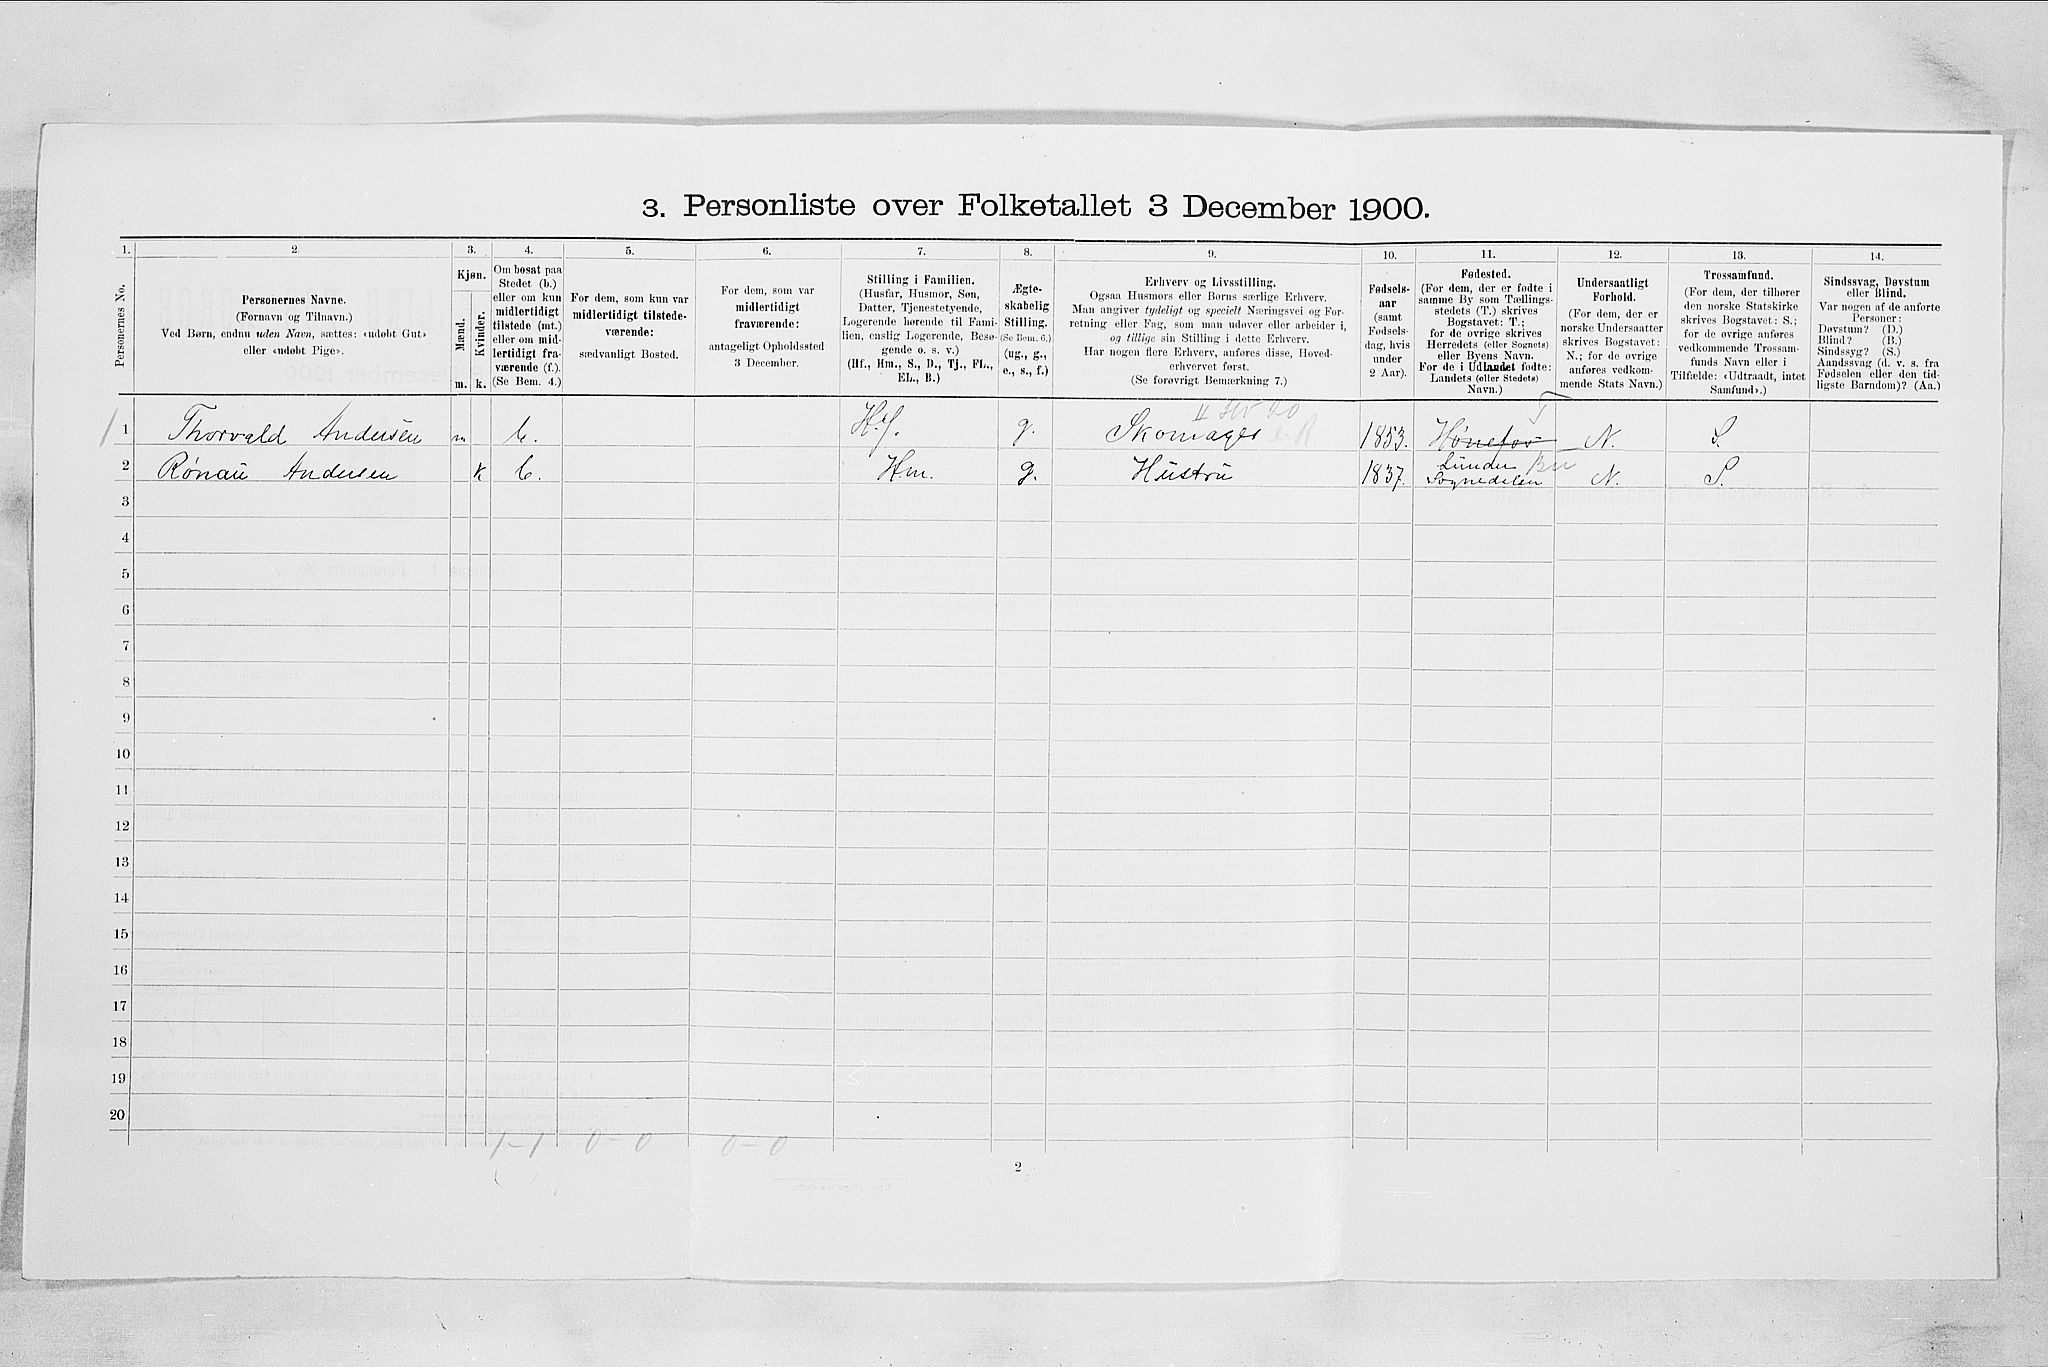 3. Personliste over Folketallet 3 December 1900.
1. 2. 3. 4. 5. 6. 7. 8. 9. 10. 11. 12. 13. 14.
Personernes No.
Personernes Navne.
(Fornavn og Tilnavn.)
Ved Børn, endnu uden Navn, sættes: «udøbt Gut»
eller «udøbt Pige».
Kjøn.
Mænd.
Kvinder.
m. k.
Om bosat paa
Stedet (b.)
eller om kun
midlertidigt
tilstede (mt.)
eller om mid-
lertidigt fra-
værende (f.).
(Se Bem. 4.)
For dem, som kun var
midlertidigt tilstede-
værende:
sædvanligt Bosted.
For dem, som var
midlertidigt
fraværende:
antageligt Opholdssted
3 December.
Stilling i Familien.
(Husfar, Husmor, Søn,
Datter, Tjenestetyende,
Logerende hørende til Fami-
lien, enslig Logerende, Besø-
gende o. s. v.)
(Hf., Hm., S., D., Tj., FL.,
EL., B.)
Ægte-
skabelig
Stilling.
(Se Bem. 6.)
(ug., g.,
e., s., f.)
Erhverv og Livsstilling.
Ogsaa Husmors eller Børns særlige Erhverv.
Man angiver tydeligt og specielt Næringsvei og For-
retning eller Fag, som man udøver eller arbeider i,
og tillige sin Stilling i dette Erhverv.
Har nogen flere Erhverv, anføres disse, Hoved-
erhvervet først.
(Se forøvrigt Bemærkning 7.)
Fødsels-
aar
(samt
Fødsels-
dag, hvis
under
2 Aar).
Fødested.
(For dem, der er fødte i
samme By som Tællings-
stedets (T.) skrives
Bogstavet: T.;
for de øvrige skrives
Herredets (eller Sognets)
eller Byens Navn.
For de i Udlandet fødte:
Landets (eller Stedets)
Navn.)
Undersaatligt
Forhold.
(For dem, der er
norske Undersaatter
skrives Bogstavet:
N.; for de øvrige
anføres vedkom-
mende Stats Navn.)
Trossamfund.
(For dem, der tilhører
den norske Statskirke
skrives Bogstavet: S.;
for de øvrige anføres
vedkommende Trossam-
funds Navn eller i
Tilfælde: «Udtraadt, intet
Samfund».)
Sindssvag, Døvstum
eller Blind.
Var nogen af de anførte
Personer:
Døvstum? (D.)
Blind? (B.)
Sindssyg? (S.)
Aandssvag (d. v. s. fra
Fødselen eller den tid-
ligste Barndom)? (Aa.)
1 Thorvald Andersen m b. Hf. g. Skomager 1853. Hønefos T N. S.
2 Rønau Andersen k b. Hm. g. Hustru 1837. Lunder Sognedalen Bu N. S.
3
4
5
6
7
8
9
10
11
12
13
14
15
16
17
18
19
20
1-1 0-0 0-0
2